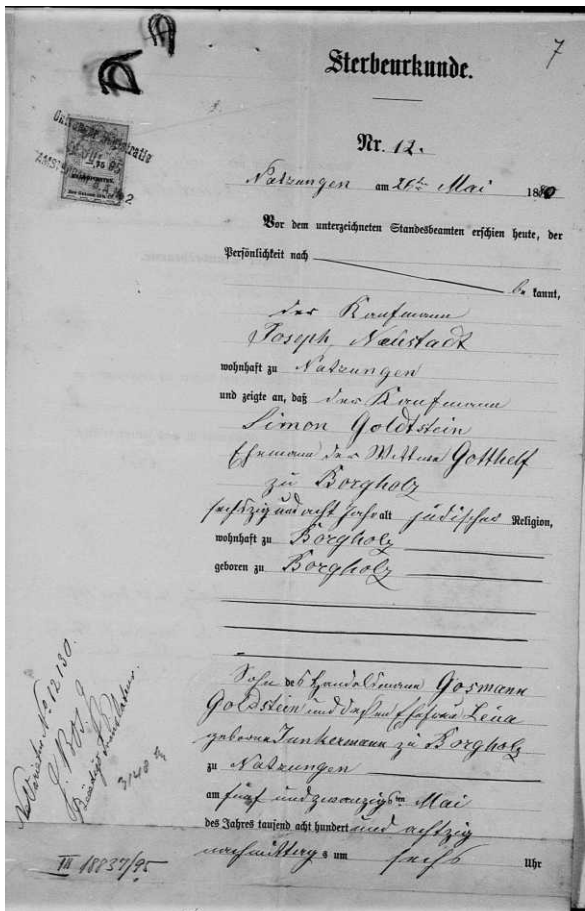 7
Sterbeurkunde.
Nr. 12.
Natzungen am 26ten Mai 1880
Vor dem unterzeichneten Standesbeamten erschien heute, der
Persönlichkeit nach
be kannt,
der Kaufmann
Joseph Neustadt
wohnhaft zu Natzungen
und zeigte an, daß der Kaufmann
Simon Goldtstein
Ehemann der Wittwe Gotthelf
zu Borgholz
sechszig und acht Jahr alt jüdischer Religion,
wohnhaft zu Borgholz
geboren zu Borgholz
Sohn des Handelsmann Gosmann
Goldstein und dessen Ehefrau Lena
geborne Junkermann zu Borgholz
zu Natzungen
am fünf und zwanzigsten Mai
des Jahres tausend acht hundert und achtzig
nachmittags um sechs Uhr
No 12130.
III 18837/95